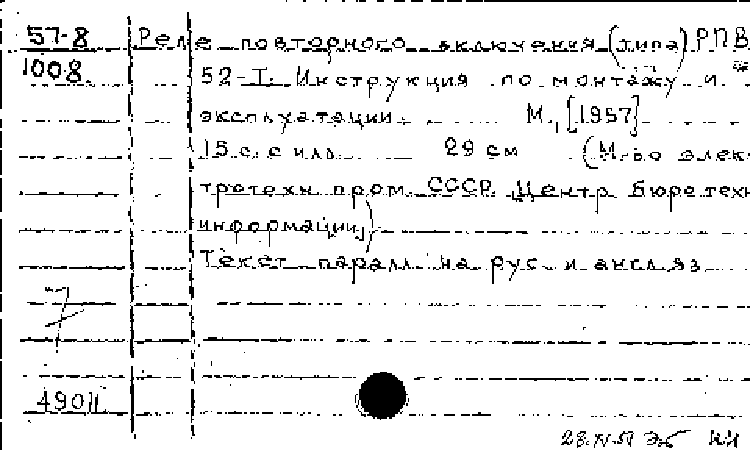 57-8 Реле повторного включения (типа) РПВ
1008 52-Т. Инструкция по монтажу и
эксплуатации. М., [1957]
15 с. с илл. 29 см (М-во элек-
тротехн. пром. СССР. Центр. бюро техн
информации)
Текст паралл. на рус. и англ. яз.
7
49011